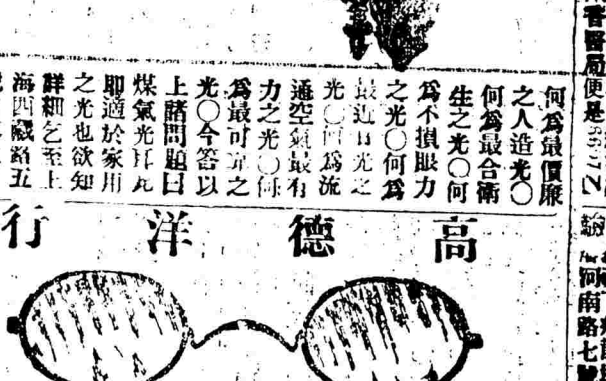 何為最價廉
之人造光〇
何為最合衛
生之光〇何
為不損眼力
之光〇何為
最近日光之
光〇何為流
通空氣最有
力之光〇何
為最可靠之
光〇今答以
上諸問題曰
煤氣光耳此
即適於家用
之光也欲知
詳細乞至上
海西藏路五
高德洋行
香醫局便是
河南路七號